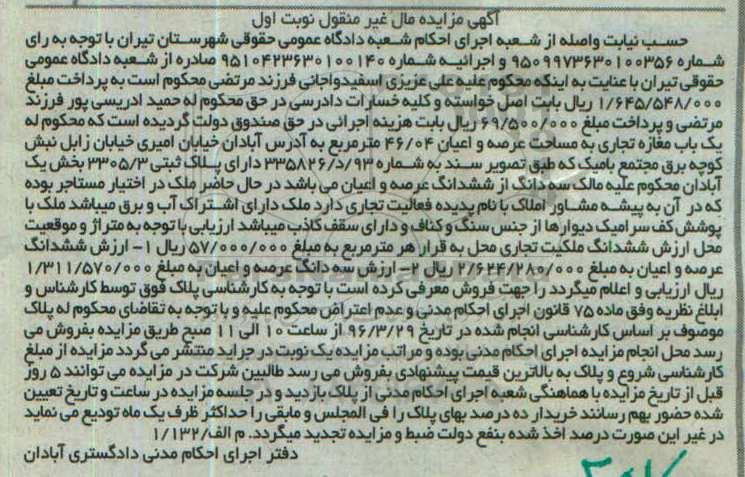 آگهی مزایده مال غیر منقول نوبت اول
حسب نیابت واصله از شعبه اجرای احکام شعبه دادگاه عمومی حقوقی شهرستان تیران با توجه به رای
شماره 9509973630100356 و اجرائیه شماره 9510423630100140 صادره از شعبه دادگاه عمومی
حقوقی تیران با عنایت به اینکه محکوم علیه علی عزیزی اسفیدواجانی فرزند مرتضی محکوم است به پرداخت مبلغ
1/645/548/000 ریال بابت اصل خواسته و کلیه خسارات دادرسی در حق محکوم له حمید ادریسی پور فرزند
مرتضی و پرداخت مبلغ 69/500/000 ریال بابت هزینه اجرائی در حق صندوق دولت گردیده است که محکوم له
یک باب مغازه تجاری به مساحت عرصه و اعیان 46/04 مترمربع به آدرس آبادان خیابان امیری خیابان زابل نبش
کوچه برق مجتمع بامیک که طبق تصویر سند به شماره 335826/د/93 دارای پلاک ثبتی 3305/3 بخش یک
آبادان محکوم علیه مالک سه دانگ از ششدانگ عرصه و اعیان می باشد در حال حاضر ملک در اختیار مستاجر بوده
که در آن به پیشه مشاور املاک با نام پدیده فعالیت تجاری دارد ملک دارای اشتراک آب و برق میباشد ملک با
پوشش کف سرامیک دیوارها از جنس سنگ و کناف و دارای سقف کاذب میباشد ارزیابی با توجه به متراژ و موقعیت
محل ارزش ششدانگ ملکیت تجاری محل به قرار هر مترمربع به مبلغ 57/000/000 ریال 1- ارزش ششدانگ
عرصه و اعیان به مبلغ 2/624/280/000 ریال 2- ارزش سه دانگ عرصه و اعیان به مبلغ 1/311/570/000
ریال ارزیابی و اعلام میگردد را جهت فروش معرفی کرده است با توجه به کارشناسی پلاک فوق توسط کارشناس و
ابلاغ نظریه وفق ماده 75 قانون اجرای احکام مدنی و عدم اعتراض محکوم علیه و با توجه به تقاضای محکوم له پلاک
موصوف بر اساس کارشناسی انجام شده در تاریخ 96/3/29 از ساعت 10 الی 11 صبح طریق مزایده بفروش می
رسد محل انجام مزایده اجرای احکام مدنی بوده و مراتب مزایده یک نوبت در جراید منتشر می گردد مزایده از مبلغ
کارشناسی شروع و پلاک به بالاترین قیمت پیشنهادی بفروش می رسد طالبین شرکت در مزایده می توانند 5 روز
قبل از تاریخ مزایده با هماهنگی شعبه اجرای احکام مدنی از پلاک بازدید و در جلسه مزایده در ساعت و تاریخ تعیین
شده حضور بهم رسانند خریدار ده درصد بهای پلاک را فی المجلس و مابقی را حداکثر ظرف یک ماه تودیع می نماید
در غیر این صورت درصد اخذ شده بنفع دولت ضبط و مزایده تجدید میگردد. م الف/1/132
دفتر اجرای احکام مدنی دادگستری آبادان